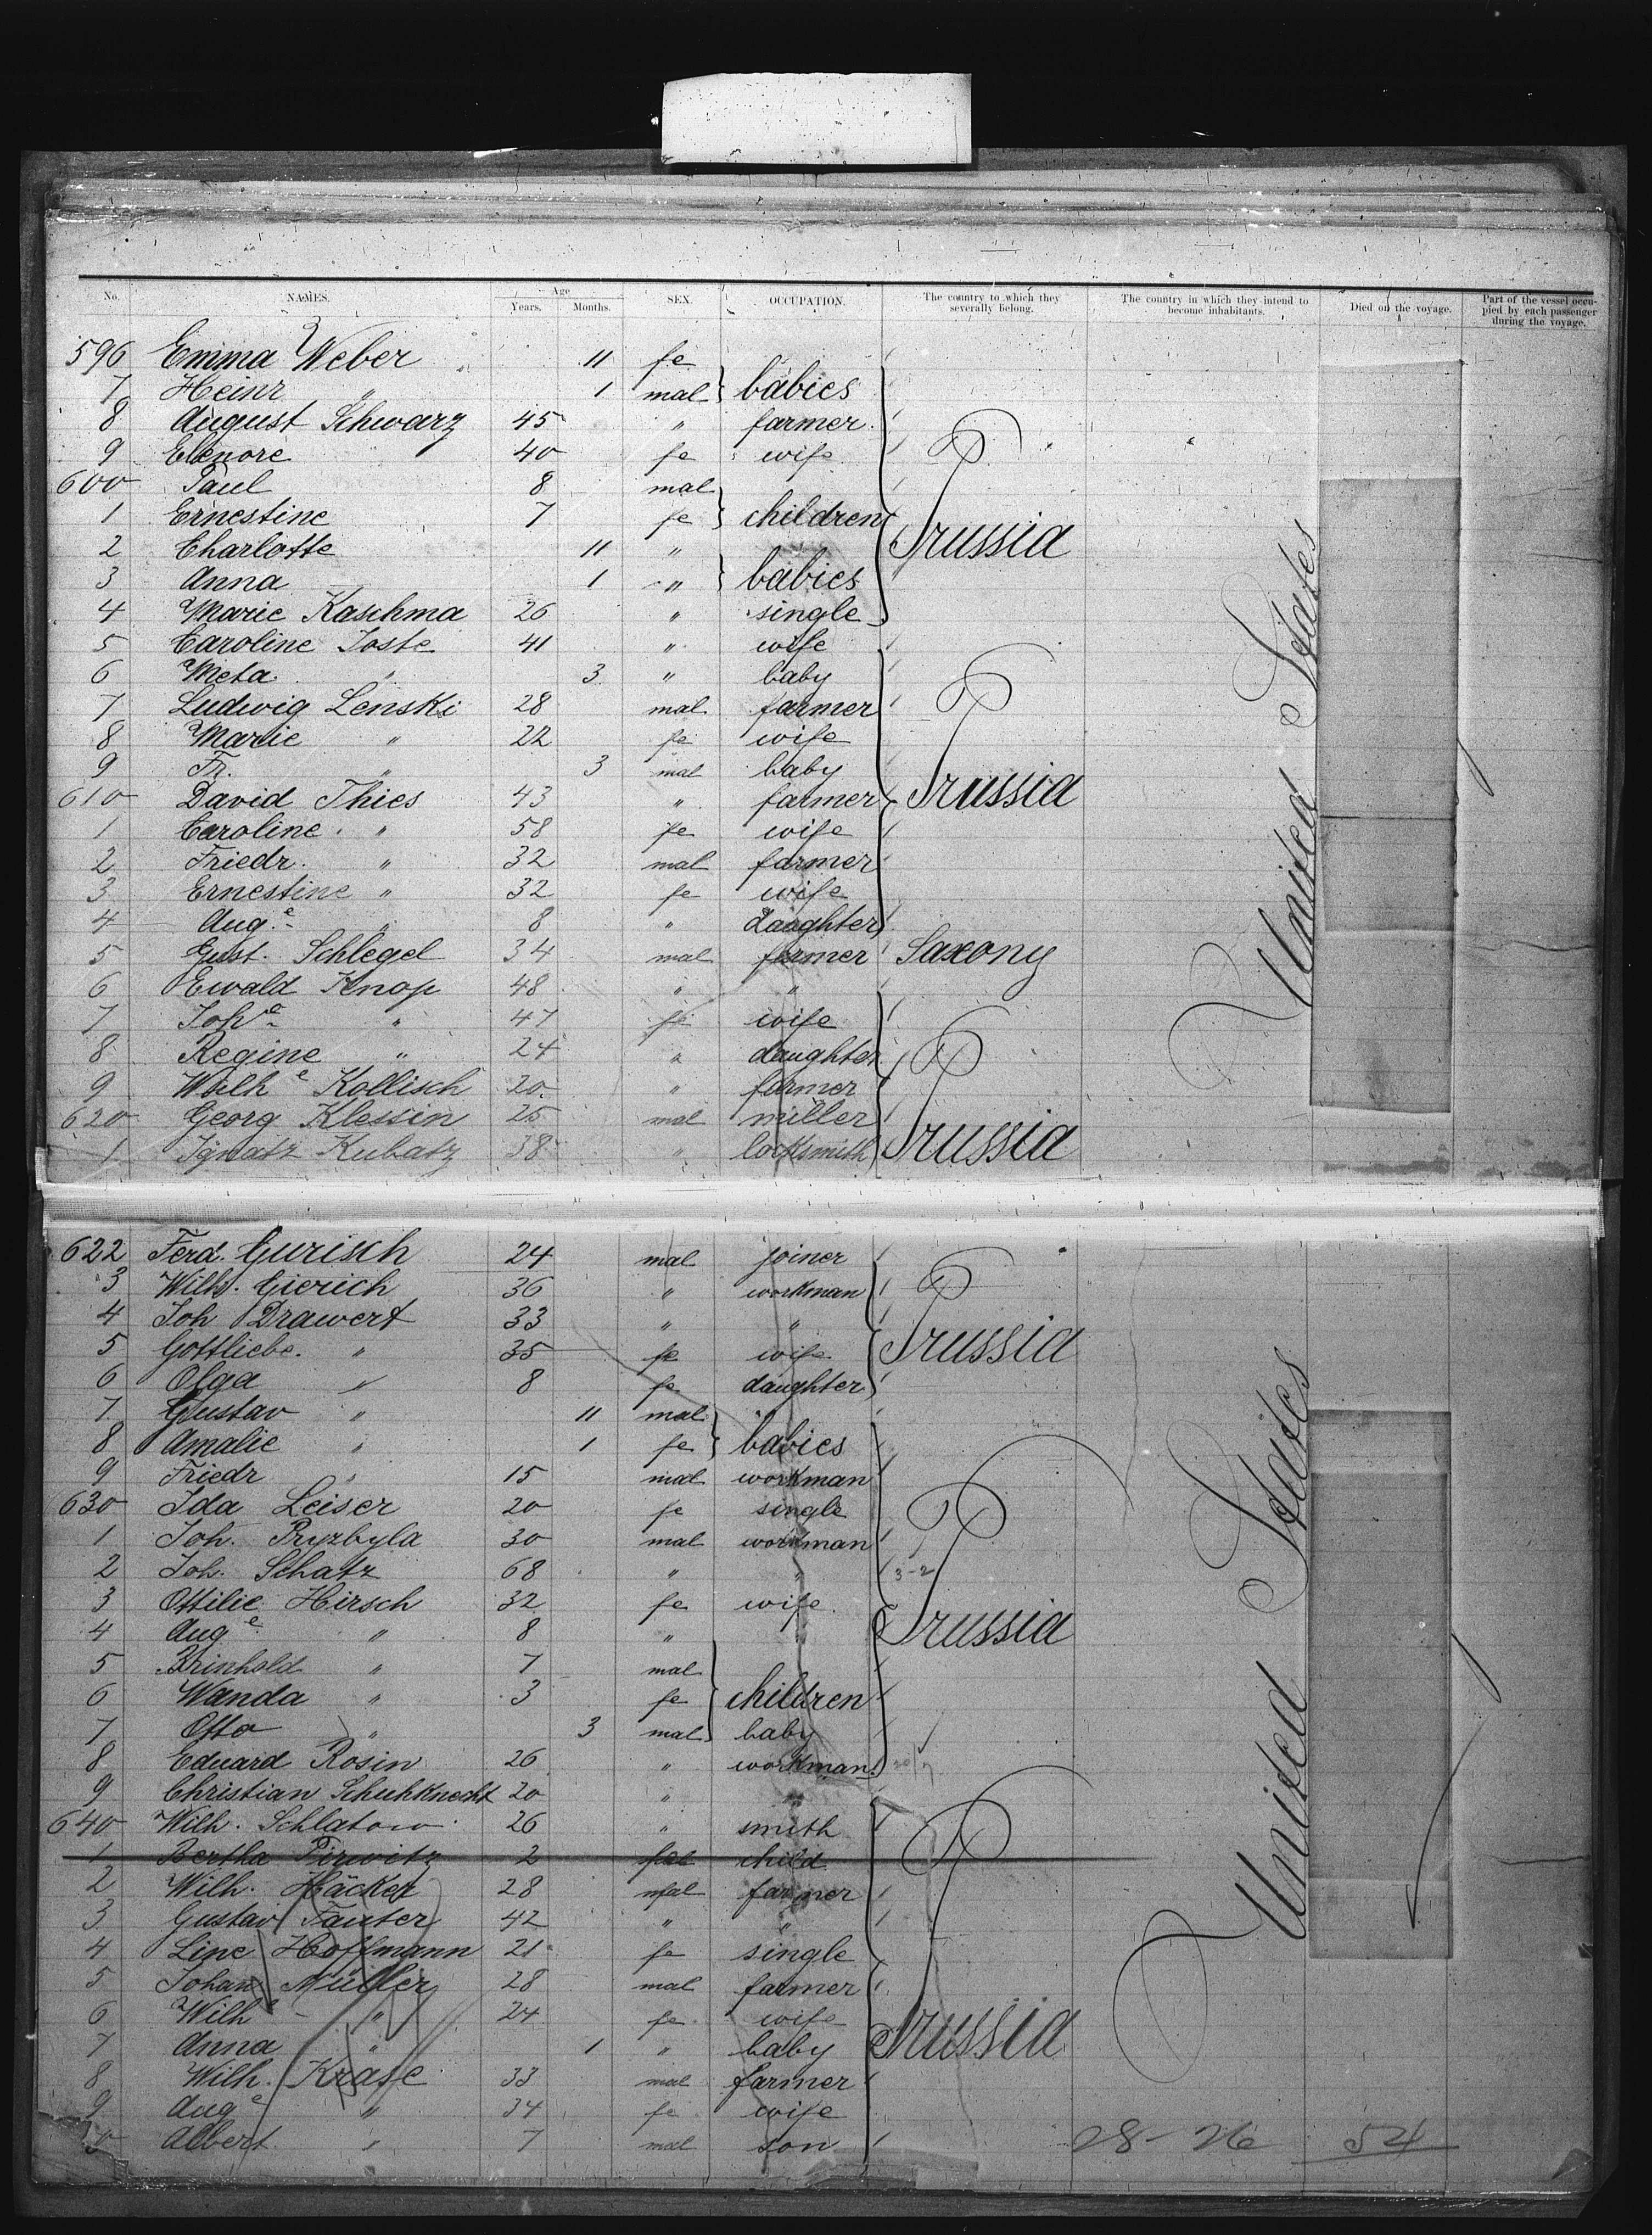 No. NAMES. Age Years. Months. SEX. OCCUPATION. The country to which they severally belong. The country in which they intend to become inhabitants. Died on the voyage. Part of the vessel occupied by each passenger during the voyage.
596 Emma Weber 11 fe
7 Heinr " 1 mal babies
8 August Schwarz 45 " farmer
9 Elenore 40 fe wife
600 Paul 8 mal
1 Ernestine 7 fe children Prussia
2 Charlotte 11 "
3 Anna 1 " babies
4 Marie Kaschma 26 " single
5 Caroline Joste 41 " wife
6 Meta " 3 " baby
7 Ludwig Lenski 28 mal farmer
8 Marie " 22 fe wife
9 Fr. " 3 mal baby
610 David Thies 43 " farmer Prussia
1 Caroline " 58 fe wife
2 Friedr. " 32 mal farmer
3 Ernestine " 32 fe wife
4 Auge " 8 " daughter
5 Gust. Schlegel 34 mal farmer Saxony
6 Ewald Knop 48 " "
7 Johe " 47 fe wife
8 Regine " 24 " daughter
9 Wilhe Kollisch 20 " farmer
620 Georg Klessin 25 mal miller
1 Ignatz Kubatz 38 " locksmith Prussia
United States
622 Ferd. Gurisch 24 mal joiner
3 Wilh. Gierich 36 " workman
4 Joh Drawert 33 " "
5 Gottliebe " 35 fe wife Prussia
6 Olga " 8 fe daughter
7 Gustav " 11 mal
8 Amalie " 1 fe babies
9 Friedr " 15 mal workman
630 Ida Leiser 20 fe single
1 Joh. Pryzbyla 30 mal workman
2 Joh. Schatz 68 " " 3-2
3 Ottilie Hirsch 32 fe wife
4 Auge " 8 " Prussia
5 Reinhold " 7 mal
6 Wanda " 3 fe children
7 Otto " 3 mal baby
8 Eduard Rosin 26 " workman
9 Christian Schuhknecht 20 " "
640 Wilh. Schlatow 26 " smith
1 Bertha Pirwitz 2 child
2 Wilh. Häcker 28 mal farmer
3 Gustav Fauter 42 " "
4 Line Hoffmann 21 fe single
5 Johan Müller 28 mal farmer
6 Wilhe " 24 fe wife
7 Anna " 1 " baby Prussia
8 Wilh. Krase 33 mal farmer
9 Auge " 34 fe wife
Albert " 7 mal son
United States
28-26 54